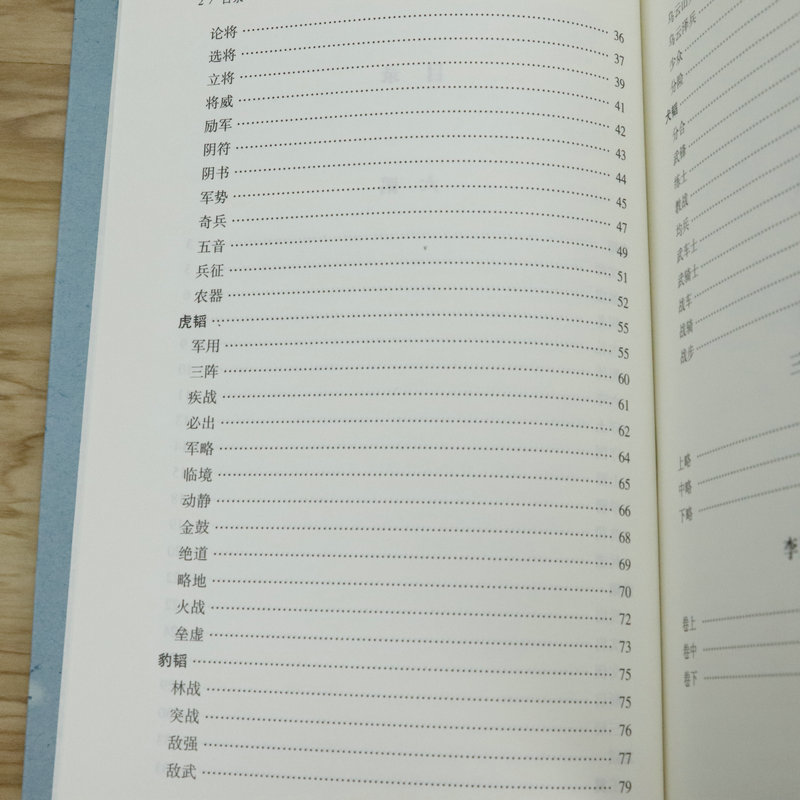 论将 36
选将 37
立将 39
将威 41
励军 42
阴符 43
阴书 44
军势 45
奇兵 47
五音 49
兵征 51
农器 52
虎韬 55
军用 55
三阵 60
疾战 61
必出 62
军略 64
临境 65
动静 66
金鼓 68
绝道 69
略地 70
火战 72
垒虚 73
豹韬 75
林战 75
突战 76
敌强 77
敌武 79
乌云泽兵
少众
分险
犬韬
分合
武锋
练士
教战
均兵
武车士
武骑士
战车
战骑
战步
三
上略
中略
下略
李
卷上
卷中
卷下